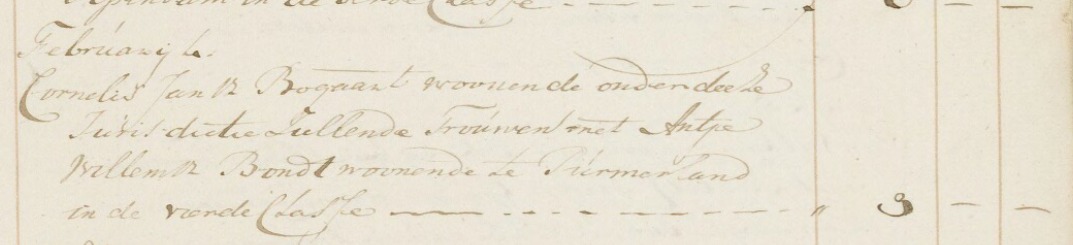 in de derde Classe - - - - - - „ - -
Februarij 4.
Cornelis Jansz Bogaart woonende onder deeze
Jurisdictie Zullende Trouwen met Antje
Willemsz Bondt woonende te Purmerland
in de vierde Classe - - - - - - „ 3 - -